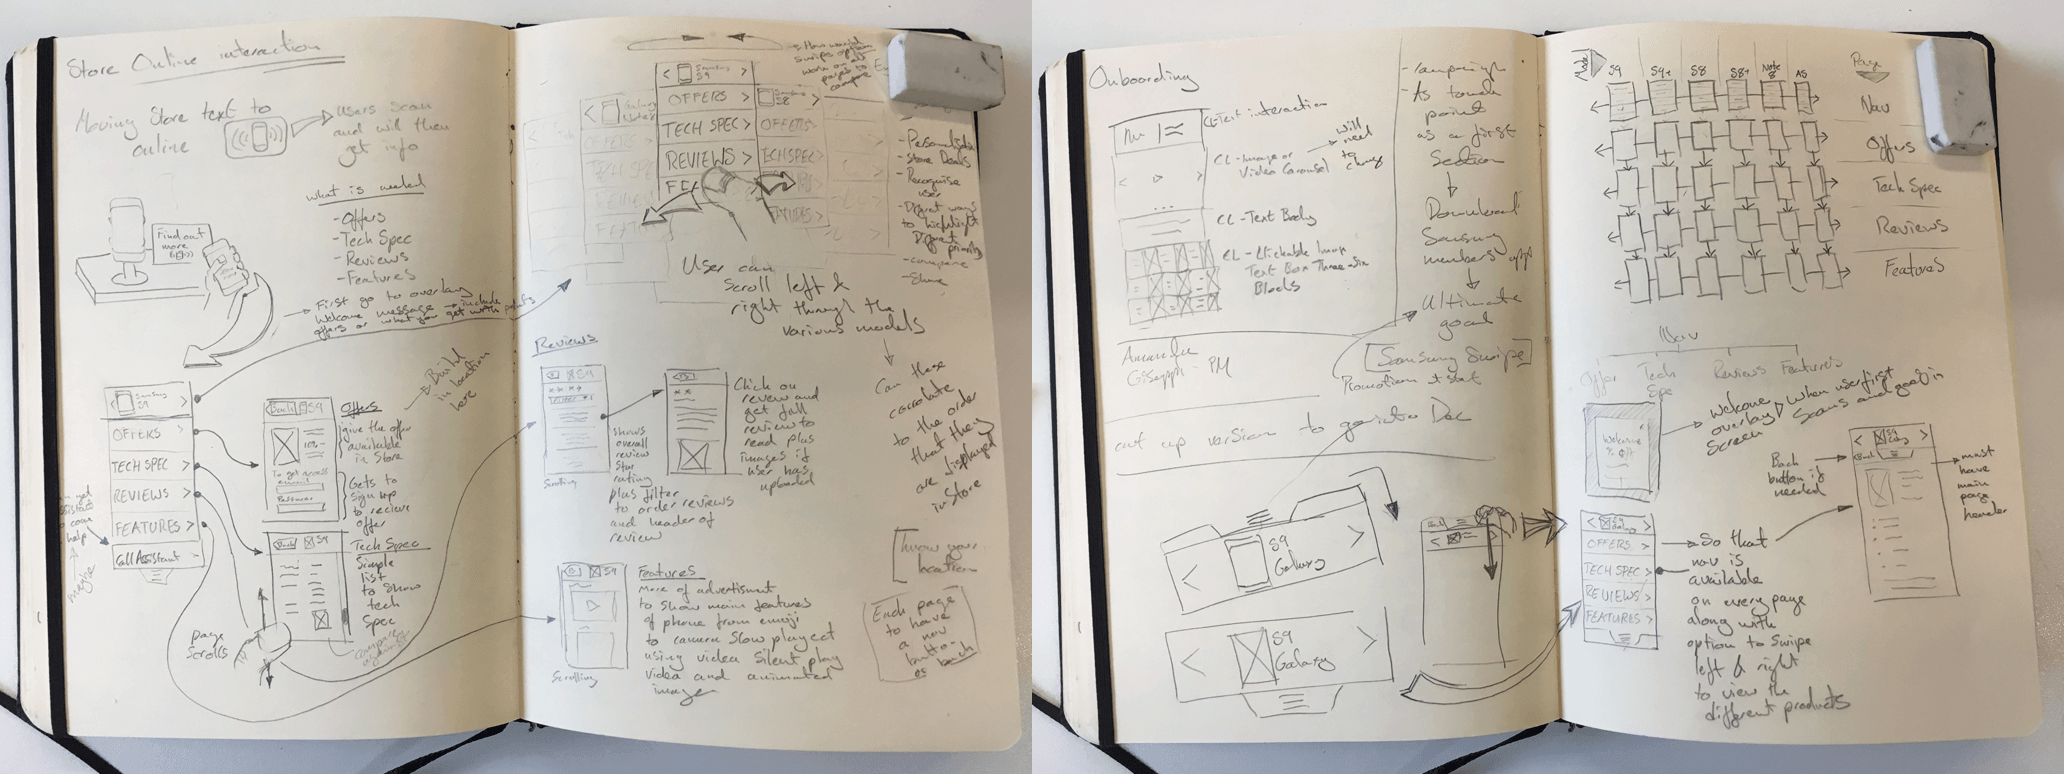 Store Online interaction
Moving Store text to
online
users scan
and will then
get info
what is needed
- Offers
- Tech Spec
- Reviews
- Features
Find out
more
First go to overlay
Welcome message → include
offers or what you get with
Build
in
location
here
Samsung
S9
OFFERS >
TECH SPEC >
REVIEWS >
FEATURES >
Call Assistant
help
maybe
Back S9
10%
To get access
Offers
give the offer
available
in Store
Gets to
sign up
to recieve
offer
Back S9
Tech Spec
Simple
list
to show
tech
Spec
page
scrolls
How would
swipe option
work on all
pages to
compare
< Samsung
S9 >
OFFERS >
TECH SPEC >
REVIEWS >
Samsung
S8 >
OFFERS
TECH SPEC
- Store Deals
- Recognise
user
- Different ways
to highlight
Different
priority
- compare
- Share
User can
scroll left &
right through the
various models
Can these
correlate
to the order
that they
are displayed
in Store
Reviews
Scrolling
shows
overall
review
Star
rating
plus filter
to order reviews
and header of
review
Click on
review and
get full
review to
read plus
images if
user has
uploaded
S9
Features
More of advertisment
to show main features
of phone from emoji
to camera slow play ect
using video silent play
video and animated
image
Scrolling
know your
location
Each page
to have
a nav
button
Onboarding
CL-Text interaction
CL-Image or
Video Carousel
will
need
to
change
CL-Text Body
CL-Clickable Image
Text Box Three-Six
Blocks
- Campaign
- As touch
point
as a first
Section
Download
Samsung
members app
Ultimate
goal
Samsung Swipe
Promotion
Amanda
Giseppi - PM
cut up version to go into Doc
< S9
Galaxy >
< S9
Galaxy >
Model
S9 S9+ S8 S8+ Note 8 A5
Page
Nav
Offers
Tech Spec
Reviews
Features
Nav
Offer Tech Spec Reviews Features
Welcome
Welcome
overlay
screen
when user first
Scans and goes in
Back
button if
needed
< S9 >
Back
must
have
main
page
header
< S9
Galaxy >
OFFERS >
TECH SPEC >
REVIEWS >
FEATURES >
So that
nav is
available
on every page
along with
option to swipe
left & right
to view the
different products